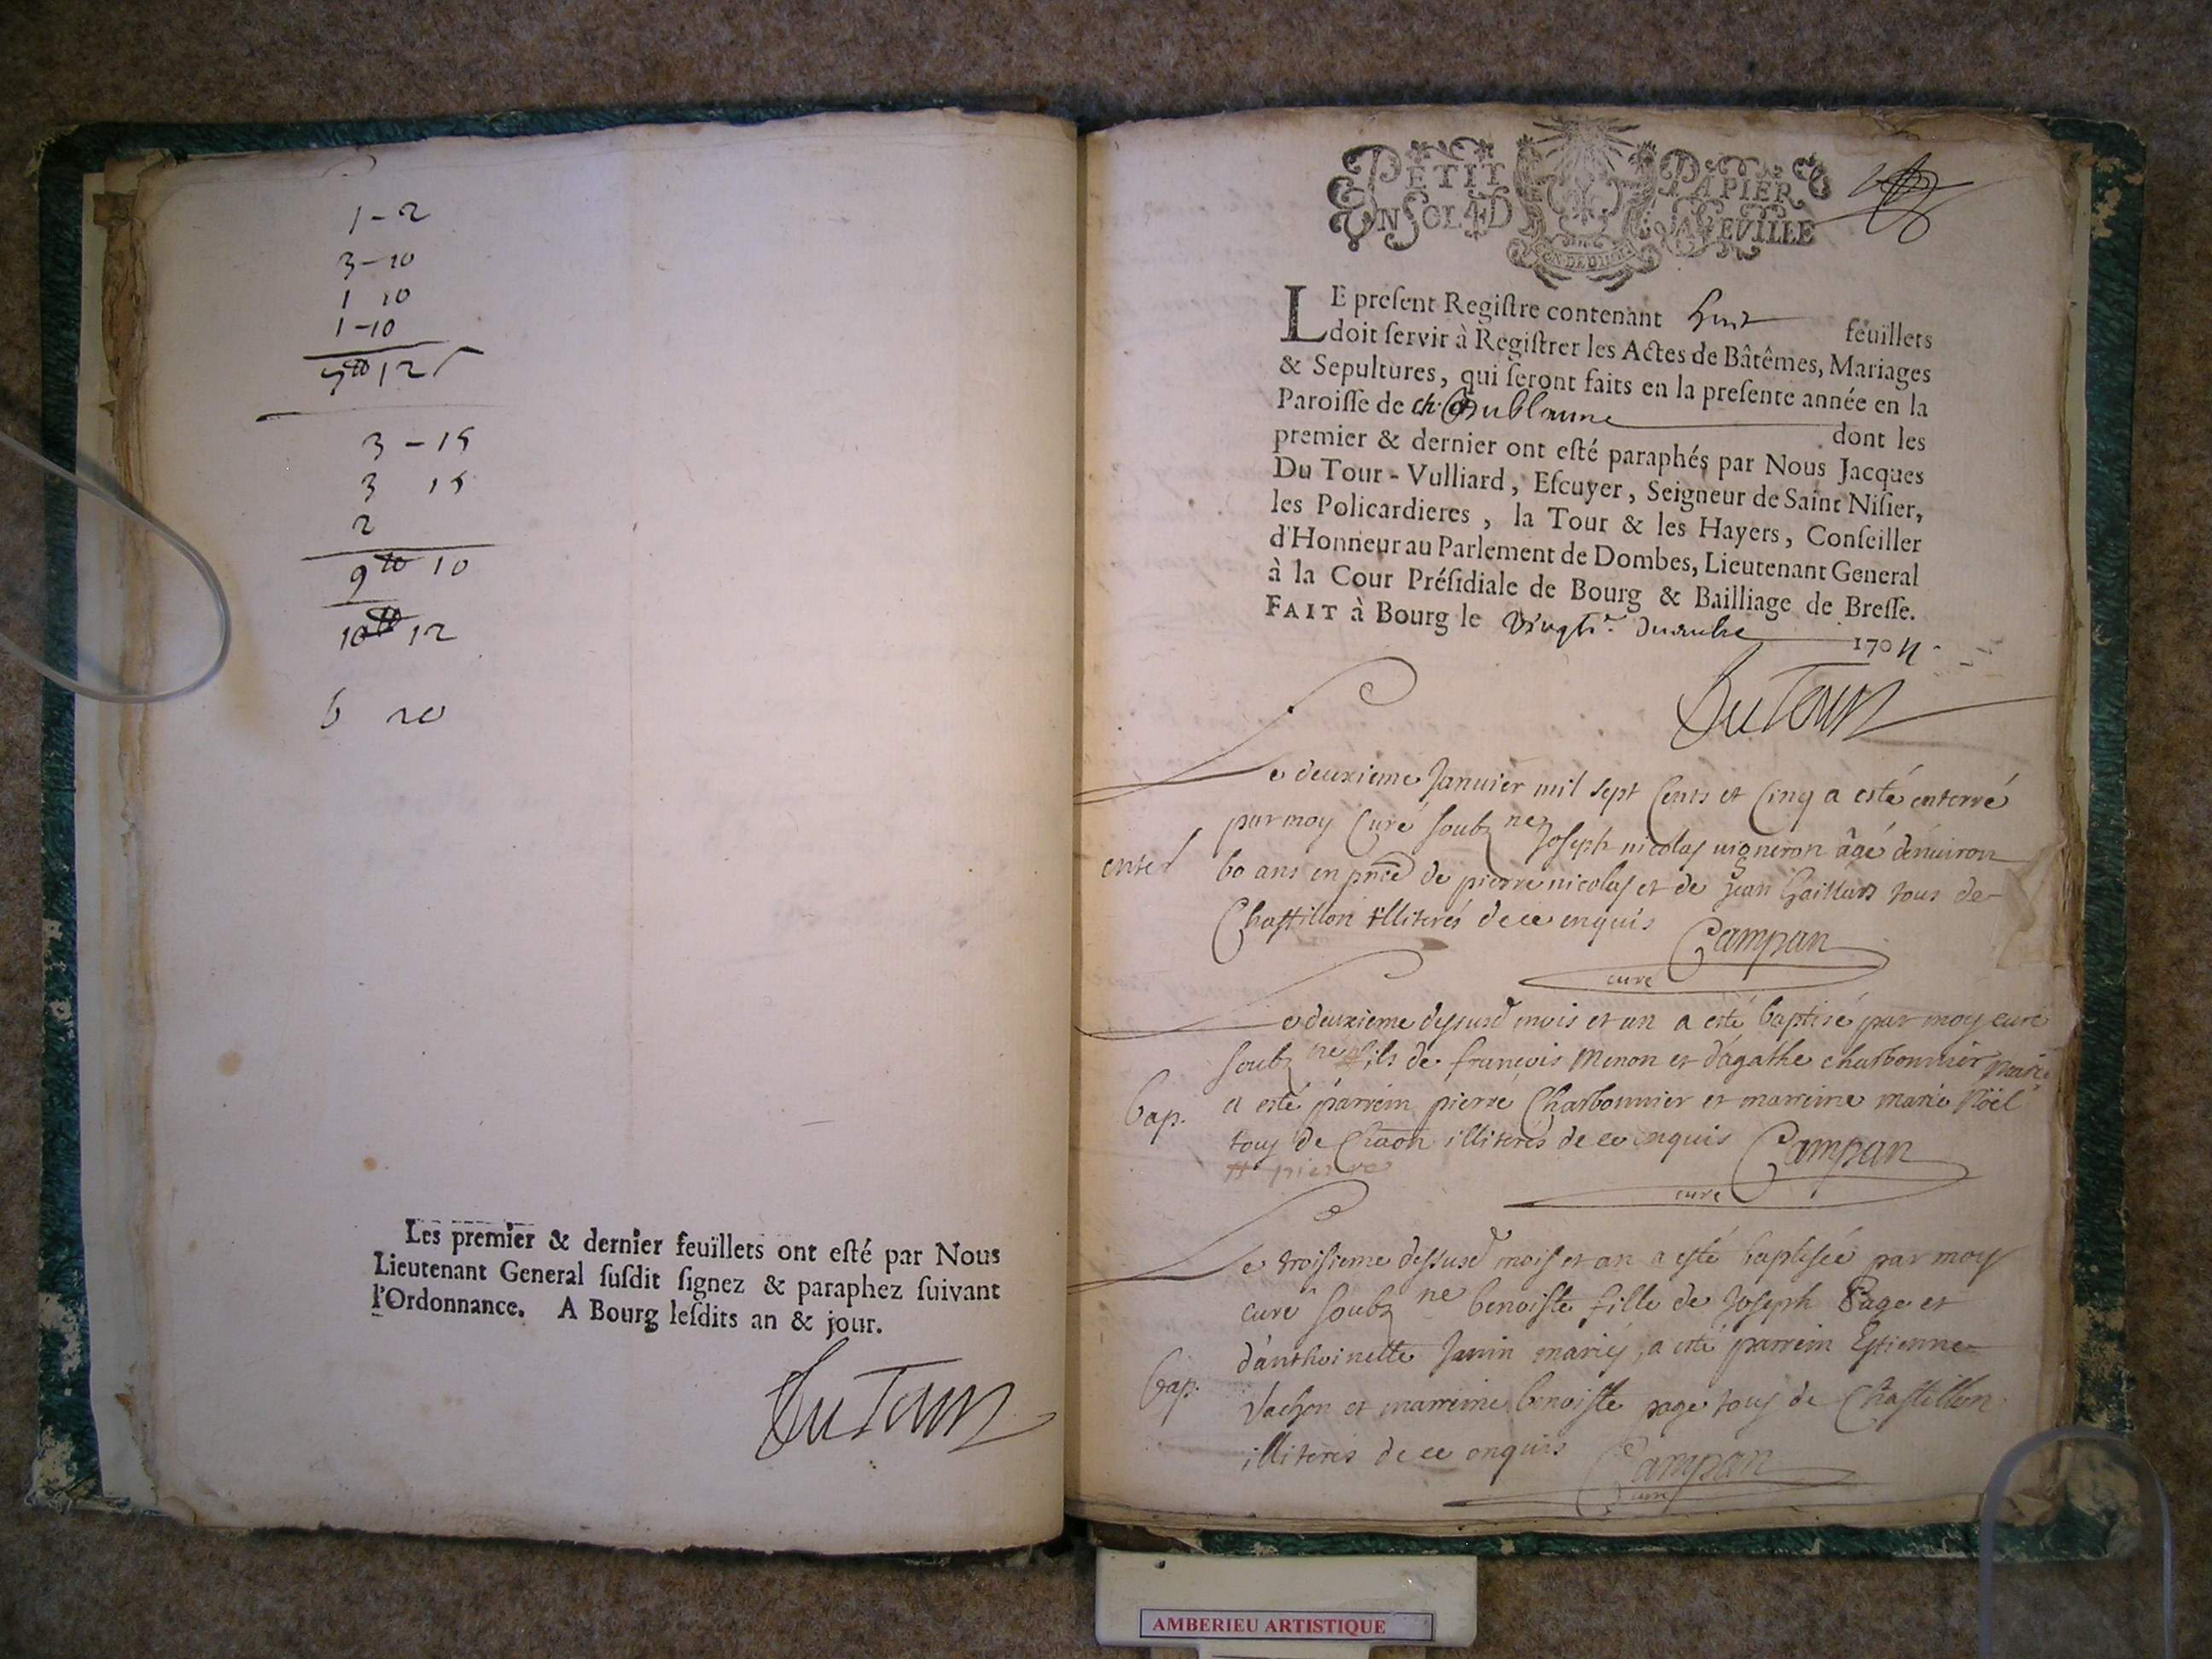 1 - 2
3 - 10
1 10
1 - 10
7 tt 12 s
3 - 15
3 15
2
9 tt 10
10 tt 12
6 20
Les premier & dernier feuïllets ont eſté par Nous
Lieutenant General ſuſdit ſignez & paraphez ſuivant
l'Ordonnance. A Bourg leſdits an & jour.
DuTour
PETIT PAPIER
UN SOL 4 D LA FEUILLE
LE preſent Regiſtre contenant huit feuïllets
doit ſervir à Regiſtrer les Actes de Bâtêmes, Mariages
& Sepultures, qui ſeront faits en la preſente année en la
Paroiſſe de ch. dont les
premier & dernier ont eſté paraphés par Nous Jacques
Du Tour - Vulliard, Eſcuyer, Seigneur de Saint Niſier,
les Policardieres, la Tour & les Hayers, Conſeiller
d'Honneur au Parlement de Dombes, Lieutenant General
à la Cour Préſidiale de Bourg & Bailliage de Breſſe.
FAIT à Bourg le 1704
DuTour
Le deuxieme Janvier mil sept Cents et Cinq a esté enterré
par moy Curé soubz né Joseph nicolas vigneron âgé d'environ
enter
60 ans en pñce de pierre nicolas et de Jean Gaillard tous de
Chastillon illiterés de ce enquis
Campan
curé
Le deuxieme dessusd mois et an a esté baptisé par moy curé
soubz né # fils de françois Menon et d'agathe charbonnier mariés
Bap.
a esté parrein pierre Charbonnier et marreine marie Noël
tous de Chãon illiterés de ce enquis Campan
# pierre
curé
Le troisieme dessusd mois et an a esté baptisée par moy
curé soubz né benoiste fille de Joseph Page et
d'anthoinette Janin mariés, a esté parrein Estienne
Bap.
Vachon et marreine benoiste page tous de Chastillon
illiterés de ce enquis Campan
curé
AMBERIEU ARTISTIQUE